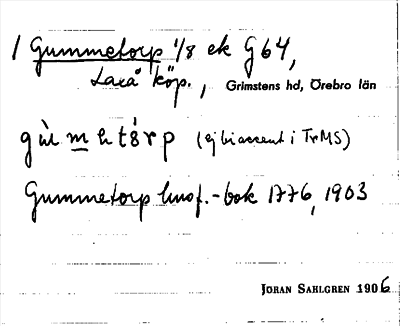 1 Gummetorp 1/8 ek G 64,
Laxå köp., Grimstens hd, Örebro län
(ej biaccent i TrMS)
Gummetorp husf.-bok 1776, 1903
JÖRAN SAHLGREN 1906